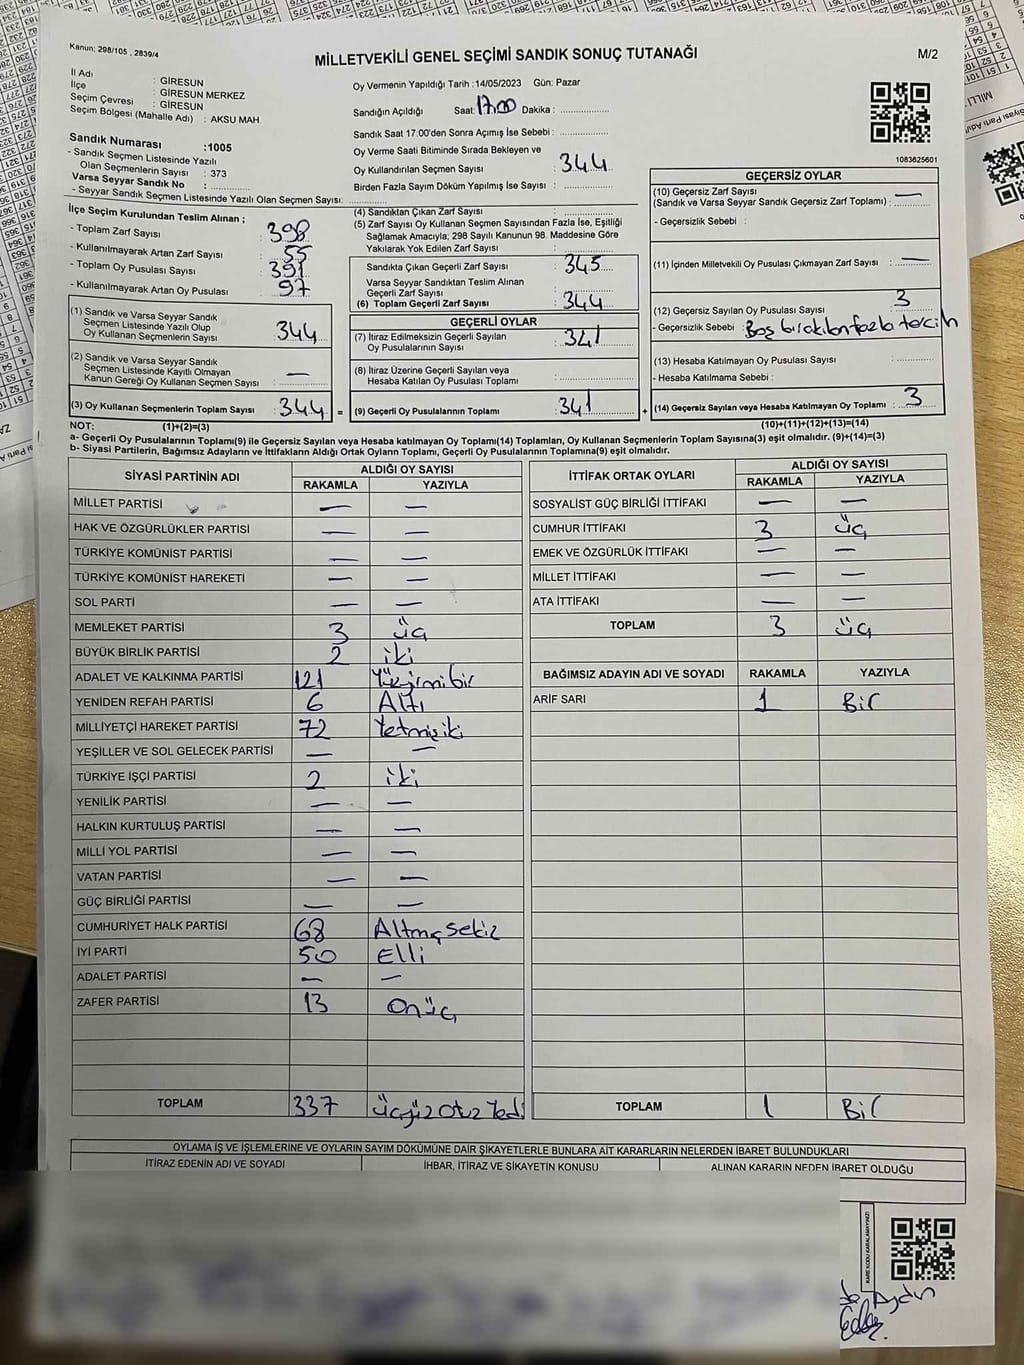 Kanun; 298/105 , 2839/4
MİLLETVEKİLİ GENEL SEÇİMİ SANDIK SONUÇ TUTANAĞI
M/2
İl Adı : GİRESUN
İlçe : GİRESUN MERKEZ
Seçim Çevresi : GİRESUN
Seçim Bölgesi (Mahalle Adı) : AKSU MAH.
Sandık Numarası :1005
- Sandık Seçmen Listesinde Yazılı
Olan Seçmenlerin Sayısı : 373
Varsa Seyyar Sandık No :
- Seyyar Sandık Seçmen Listesinde Yazılı Olan Seçmen Sayısı:
Oy Vermenin Yapıldığı Tarih :14/05/2023 Gün: Pazar
Sandığın Açıldığı Saat: 17.00 Dakika :
Sandık Saat 17:00'den Sonra Açımış İse Sebebi :
Oy Verme Saati Bitiminde Sırada Bekleyen ve
Oy Kullandırılan Seçmen Sayısı : 344
Birden Fazla Sayım Döküm Yapılmış İse Sayısı :
1083625601
İlçe Seçim Kurulundan Teslim Alınan ;
- Toplam Zarf Sayısı : 398
- Kullanılmayarak Artan Zarf Sayısı : 55
- Toplam Oy Pusulası Sayısı : 391
- Kullanılmayarak Artan Oy Pusulası : 97
(1) Sandık ve Varsa Seyyar Sandık
Seçmen Listesinde Yazılı Olup
Oy Kullanan Seçmenlerin Sayısı : 344
(2) Sandık ve Varsa Seyyar Sandık
Seçmen Listesinde Kayıtlı Olmayan
Kanun Gereği Oy Kullanan Seçmen Sayısı : —
(3) Oy Kullanan Seçmenlerin Toplam Sayısı : 344 =
(4) Sandıktan Çıkan Zarf Sayısı :
(5) Zarf Sayısı Oy Kullanan Seçmen Sayısından Fazla İse, Eşitliği
Sağlamak Amacıyla; 298 Sayılı Kanunun 98. Maddesine Göre
Yakılarak Yok Edilen Zarf Sayısı :
Sandıkta Çıkan Geçerli Zarf Sayısı : 345
Varsa Seyyar Sandıktan Teslim Alınan
Geçerli Zarf Sayısı
(6) Toplam Geçerli Zarf Sayısı : 344
GEÇERLİ OYLAR
(7) İtiraz Edilmeksizin Geçerli Sayılan
Oy Pusulalarının Sayısı : 341
(8) İtiraz Üzerine Geçerli Sayılan veya
Hesaba Katılan Oy Pusulası Toplamı :
(9) Geçerli Oy Pusulalarının Toplamı : 341 +
GEÇERSİZ OYLAR
(10) Geçersiz Zarf Sayısı
(Sandık ve Varsa Seyyar Sandık Geçersiz Zarf Toplamı) : —
- Geçersizlik Sebebi :
(11) İçinden Milletvekili Oy Pusulası Çıkmayan Zarf Sayısı : —
(12) Geçersiz Sayılan Oy Pusulası Sayısı : 3
- Geçersizlik Sebebi : Boş bırakılan fazla tercih
(13) Hesaba Katılmayan Oy Pusulası Sayısı :
- Hesaba Katılmama Sebebi :
(14) Geçersiz Sayılan veya Hesaba Katılmayan Oy Toplamı : 3
NOT: (1)+(2)=(3) (10)+(11)+(12)+(13)=(14)
a- Geçerli Oy Pusulalarının Toplamı(9) ile Geçersiz Sayılan veya Hesaba katılmayan Oy Toplamı(14) Toplamları, Oy Kullanan Seçmenlerin Toplam Sayısına(3) eşit olmalıdır. (9)+(14)=(3)
b- Siyasi Partilerin, Bağımsız Adayların ve İttifakların Aldığı Ortak Oyların Toplamı, Geçerli Oy Pusulalarının Toplamına(9) eşit olmalıdır.
SİYASİ PARTİNİN ADI ALDIĞI OY SAYISI
RAKAMLA YAZIYLA
MİLLET PARTİSİ — —
HAK VE ÖZGÜRLÜKLER PARTİSİ — —
TÜRKİYE KOMÜNİST PARTİSİ — —
TÜRKİYE KOMÜNİST HAREKETİ — —
SOL PARTİ — —
MEMLEKET PARTİSİ 3 üç
BÜYÜK BİRLİK PARTİSİ 2 iki
ADALET VE KALKINMA PARTİSİ 121 Yüzyirmibir
YENİDEN REFAH PARTİSİ 6 Altı
MİLLİYETÇİ HAREKET PARTİSİ 72 Yetmişiki
YEŞİLLER VE SOL GELECEK PARTİSİ — —
TÜRKİYE İŞÇİ PARTİSİ 2 iki
YENİLİK PARTİSİ — —
HALKIN KURTULUŞ PARTİSİ — —
MİLLİ YOL PARTİSİ — —
VATAN PARTİSİ — —
GÜÇ BİRLİĞİ PARTİSİ — —
CUMHURİYET HALK PARTİSİ 68 Altmışsekiz
İYİ PARTİ 50 Elli
ADALET PARTİSİ — —
ZAFER PARTİSİ 13 Onüç
TOPLAM 337 üçyüz otuz Yedi
İTTİFAK ORTAK OYLARI ALDIĞI OY SAYISI
RAKAMLA YAZIYLA
SOSYALİST GÜÇ BİRLİĞİ İTTİFAKI — —
CUMHUR İTTİFAKI 3 üç
EMEK VE ÖZGÜRLÜK İTTİFAKI — —
MİLLET İTTİFAKI — —
ATA İTTİFAKI — —
TOPLAM 3 üç
BAĞIMSIZ ADAYIN ADI VE SOYADI RAKAMLA YAZIYLA
ARİF SARI 1 Bir
TOPLAM 1 Bir
OYLAMA İŞ VE İŞLEMLERİNE VE OYLARIN SAYIM DÖKÜMÜNE DAİR ŞİKAYETLERLE BUNLARA AİT KARARLARIN NELERDEN İBARET BULUNDUKLARI
İTİRAZ EDENİN ADI VE SOYADI İHBAR, İTİRAZ VE ŞİKAYETİN KONUSU ALINAN KARARIN NEDEN İBARET OLDUĞU
KARE KODU KARALAMAYINIZ!